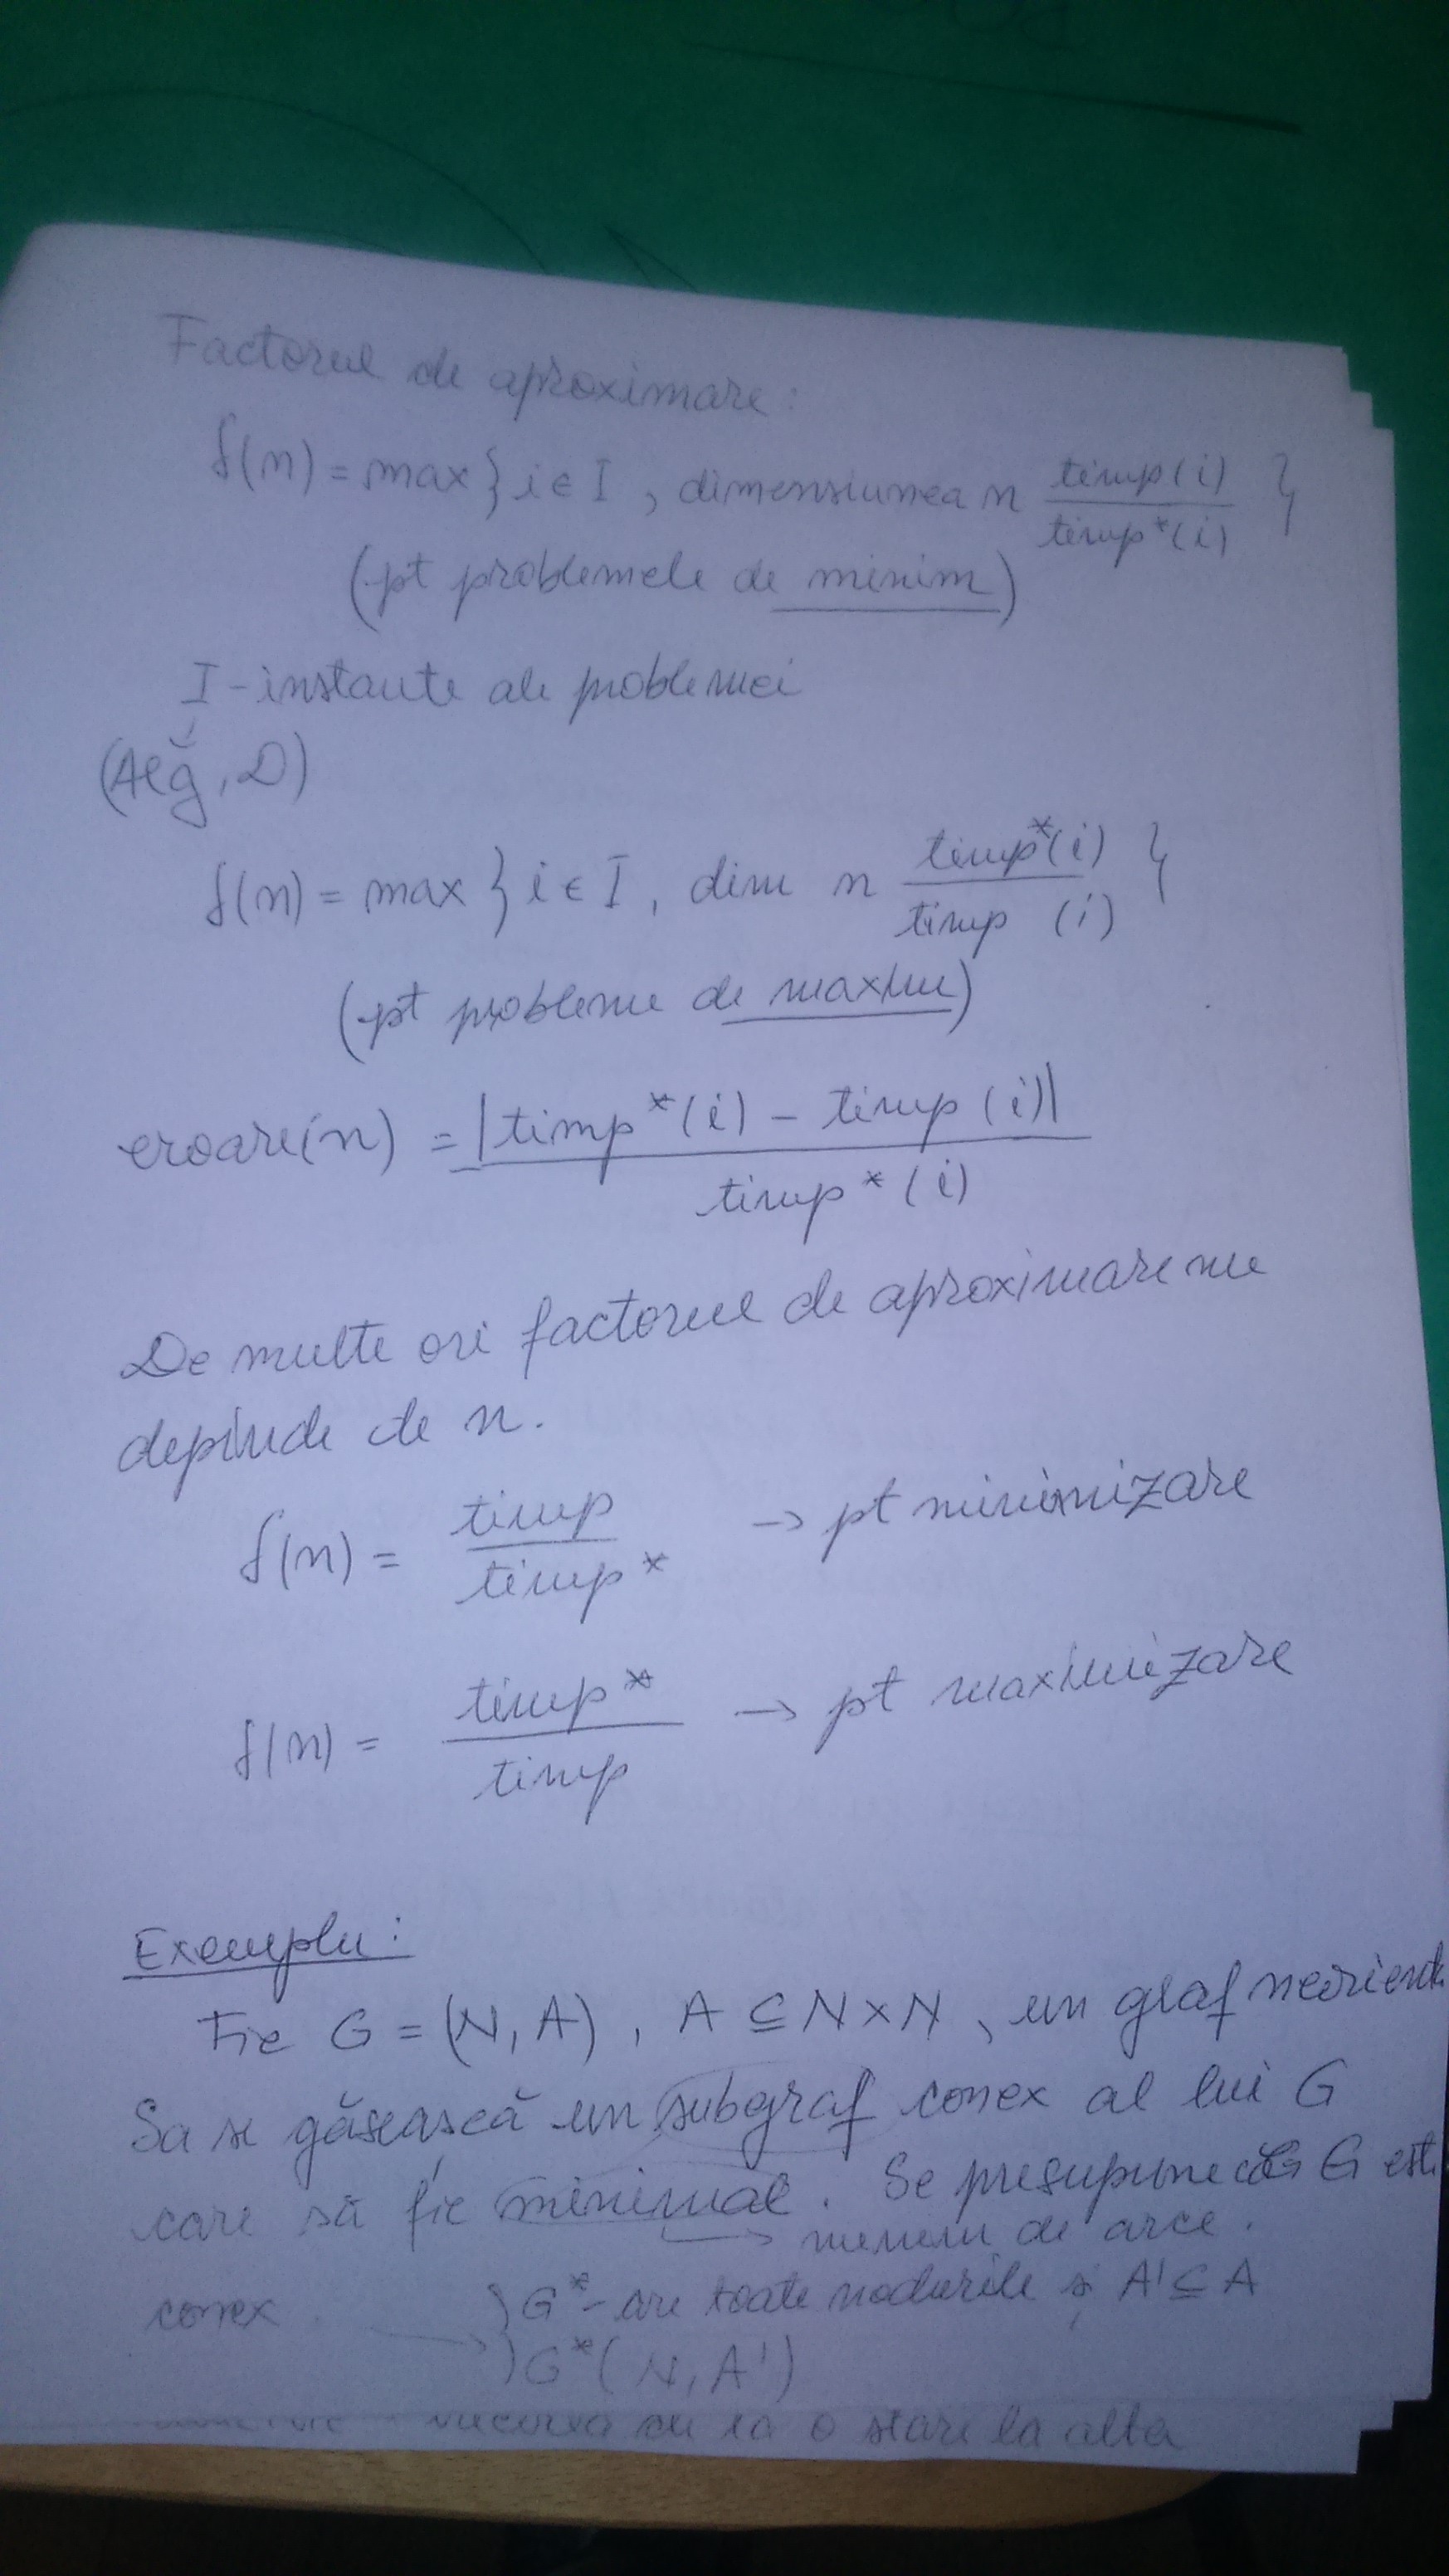 Factorul de aproximare:
f(n) = max } i ∈ I , dimensiunea n timp(i) / timp*(i) }
(pt problemele de minim)
I - instante ale problemei
(Alg, D)
f(n) = max } i ∈ I , dim n timp*(i) / timp (i) }
(pt probleme de maxim)
eroare(n) = |timp*(i) - timp (i)| / timp*(i)
De multe ori factorul de aproximare nu
depinde de n.
f(n) = timp / timp* → pt minimizare
f(n) = timp* / timp → pt maximizare
Exemplu:
Fie G = (N, A) , A ⊆ N x N , un graf neorient
Sa se găsească un subgraf conex al lui G
care să fie minimal. Se presupune că G est
→ de arce .
conex
} G* - are toate nodurile și A' ⊆ A
→ } G* ( N, A')
o stare la alta